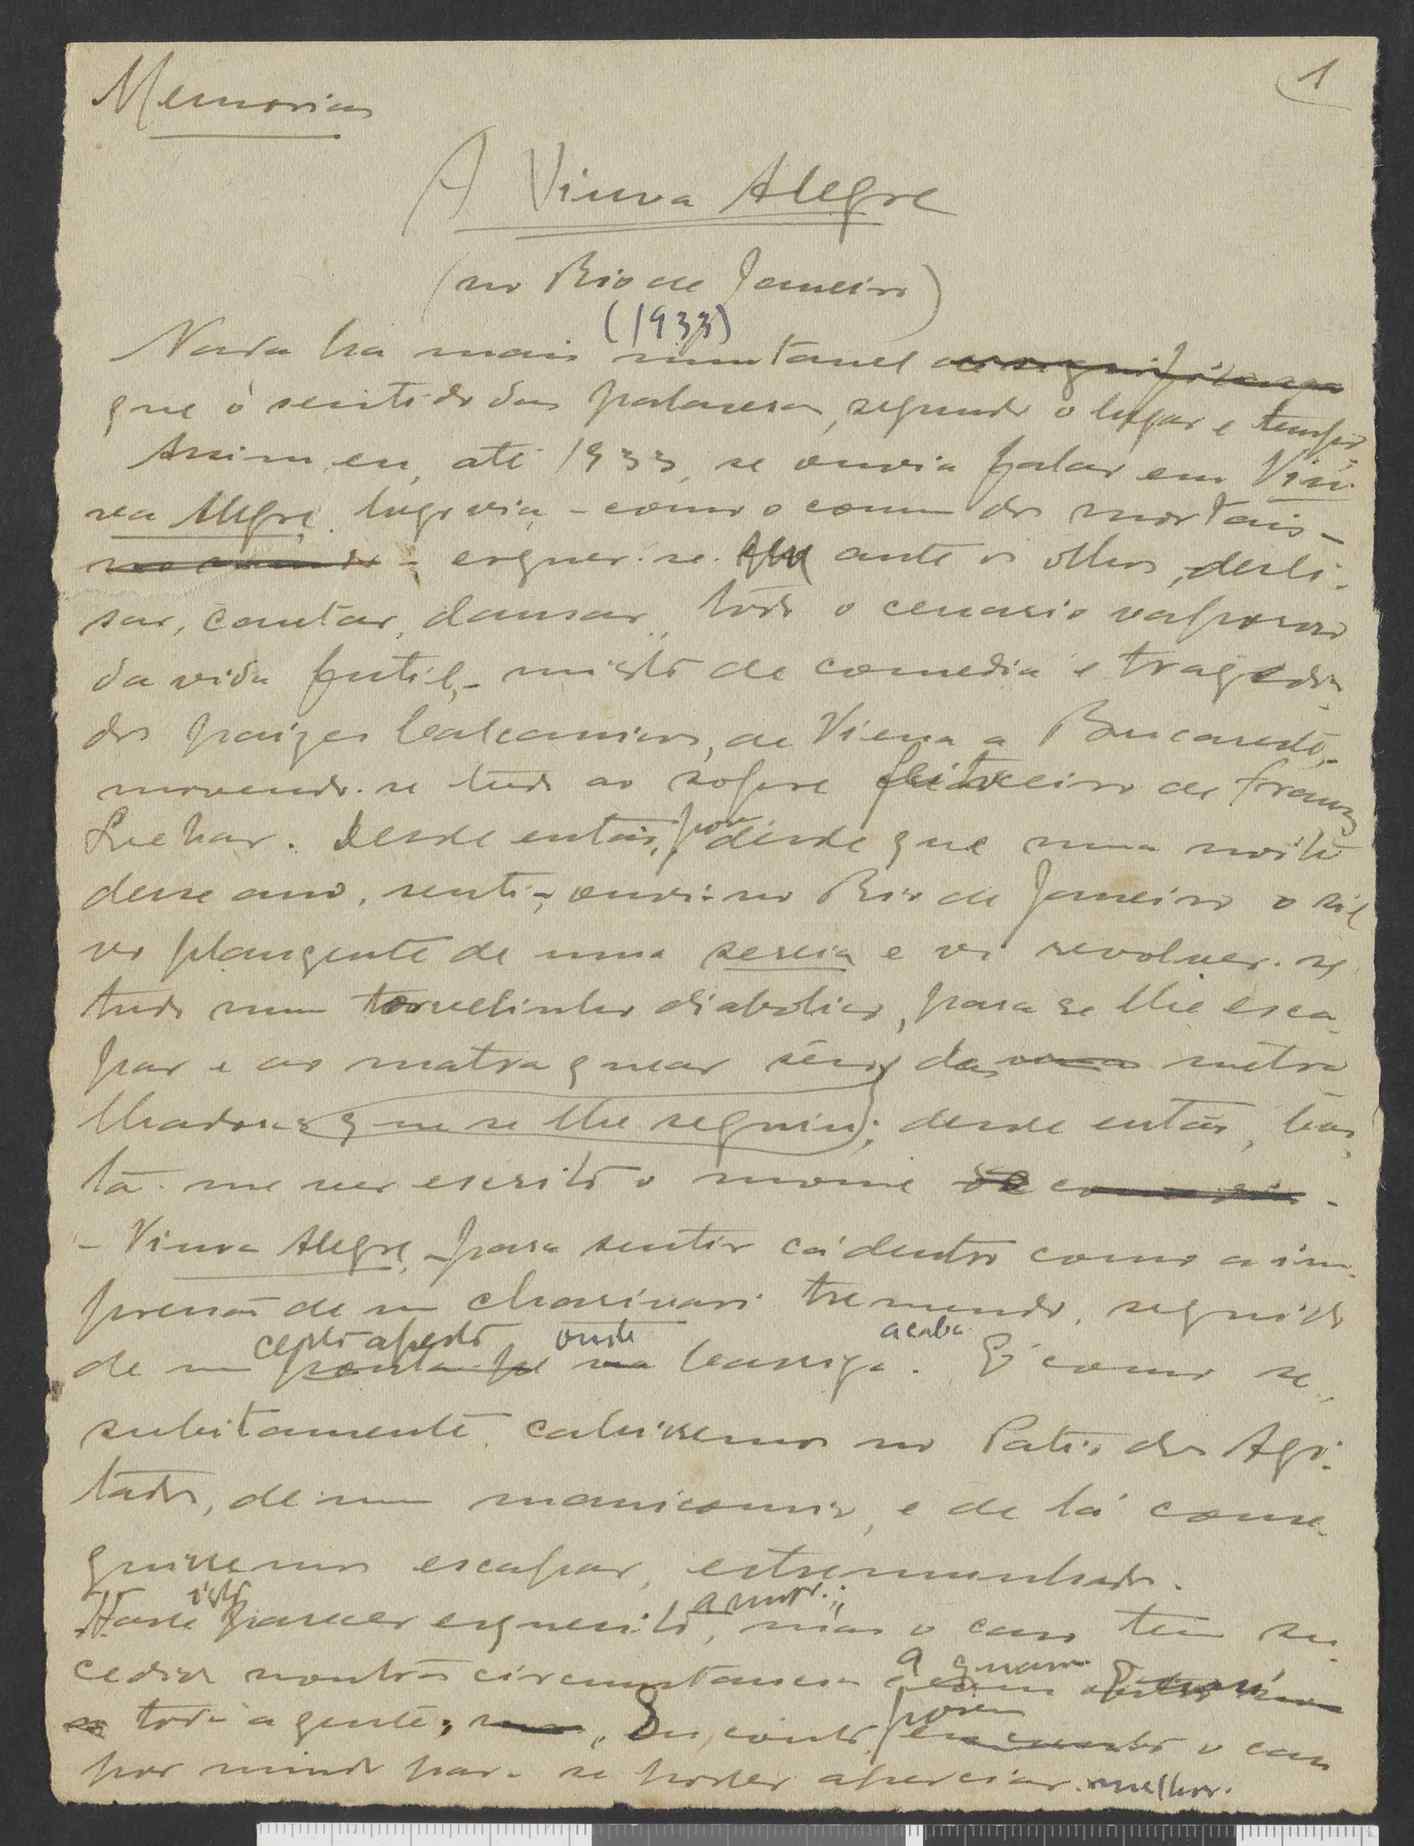 Memorias
1
A Viuva Alegre
(no Rio de Janeiro)
(1933)
Nada ha mais mutavel
que o sentido das palavras, segundo o lugar e tempo.
Assim, eu, até 1933, se ouvia falar em Viu-
va Alegre, logo via, - como o comum dos mortais -
erguer-se ante os olhos, desli-
sar, cantar, dansar, todo o cenario vaporoso
da vida futil, - misto de comedia e tragedia,
dos paizes balcanicos, de Viena a Bucareste,
movendo-se tudo ao sopro feiticeiro de Franz
Lehar. Desde então, porém desde que numa noite
desse ano, senti, ouvi no Rio de Janeiro o sil
vo plangente de uma sereia e vi revolver-se
tudo num torvelinho diabolico, para se lhe esca-
par e ao matraquear sêco das metra
lhadoras que se lhe seguiu; desde então, bas
ta-me ver escrito o nome
- Viuva Alegre, para sentir cá dentro como a im-
pressão de um charivari tremendo, seguido
de um onde a barriga acaba. É como se,
subitamente, cahissemos no Patio dos Agi-
tados, de um manicomio, e de lá conse-
guissemos escapar, estremunhados.
Hade isto parecer esquesito, amor.; mas o caso tem su
cedido noutras circumstancias a quasi
toda a gente; Eu conto, porém o caso
por miudo para se poder apreciar melhor.